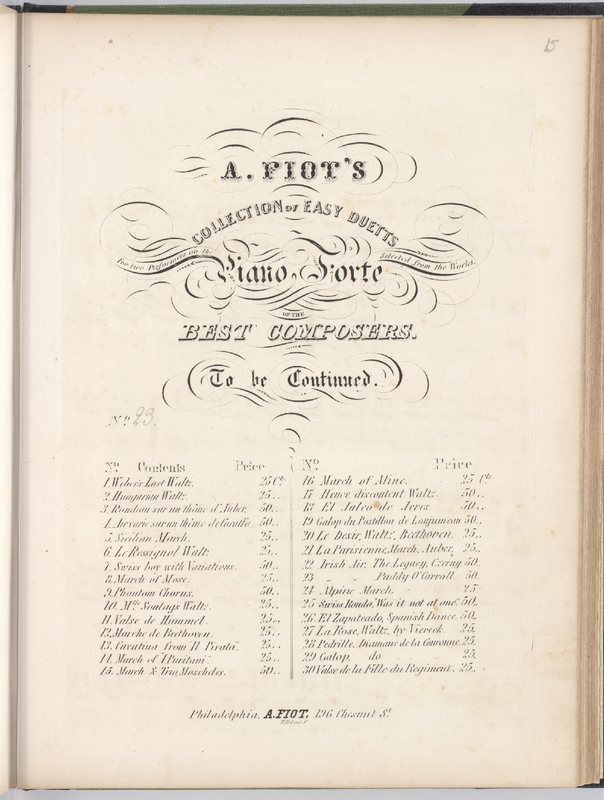 15
A. FIOT'S
COLLECTION OF EASY DUETTS
For two Performers on the
Selected from the Works.
Piano Forte
OF THE
BEST COMPOSERS.
To be Continued.
No. 23.
No. Contents Price
1. Weber's Last Waltz. 25 Cts
2. Hungarian Waltz. 25..
3. Rondeau sur un thême d'Auber. 50..
4. Air varié sur un thême de Caraffa. 50..
5. Sicilian March. 25..
6. Le Rossignol Waltz. 25..
7. Swiss boy with Variations. 50..
8. March of Mose. 25..
9. Phantom Chorus. 50..
10. Mlle Sontags Waltz. 25..
11. Valse de Hummel. 25..
12. Marche de Beethoven. 25..
13. Cavatina from "Il Pirata". 25..
14. March of "I Puritani". 25..
15. March & Trio Moscheles. 50..
No. Price
16 March of Aline. 25 Cts
17 Hence discontent Waltz. 50..
18 El Jaleo de Jeres. 50..
19 Galop du Postillon de Lonjumeau 50..
20 Le Desir, Waltz, Beethoven. 25..
21 La Parisienne, March, Auber. 25..
22 Irish Air, The Legacy, Czerny. 50.
23 " " Paddy O'Carroll. 50.
24 Alpine March. 25.
25 Swiss Rondo, "Was it not at one" 50.
26 El Zapateado, Spanish Dance. 50.
27 La Rose, Waltz, by Viereck. 25.
28 Pedrille, Diamans de la Couronne. 25.
29 Galop, do 25.
30 Valse de la Fille du Regiment. 25..
Philadelphia, A. FIOT, 196 Chesnut St.